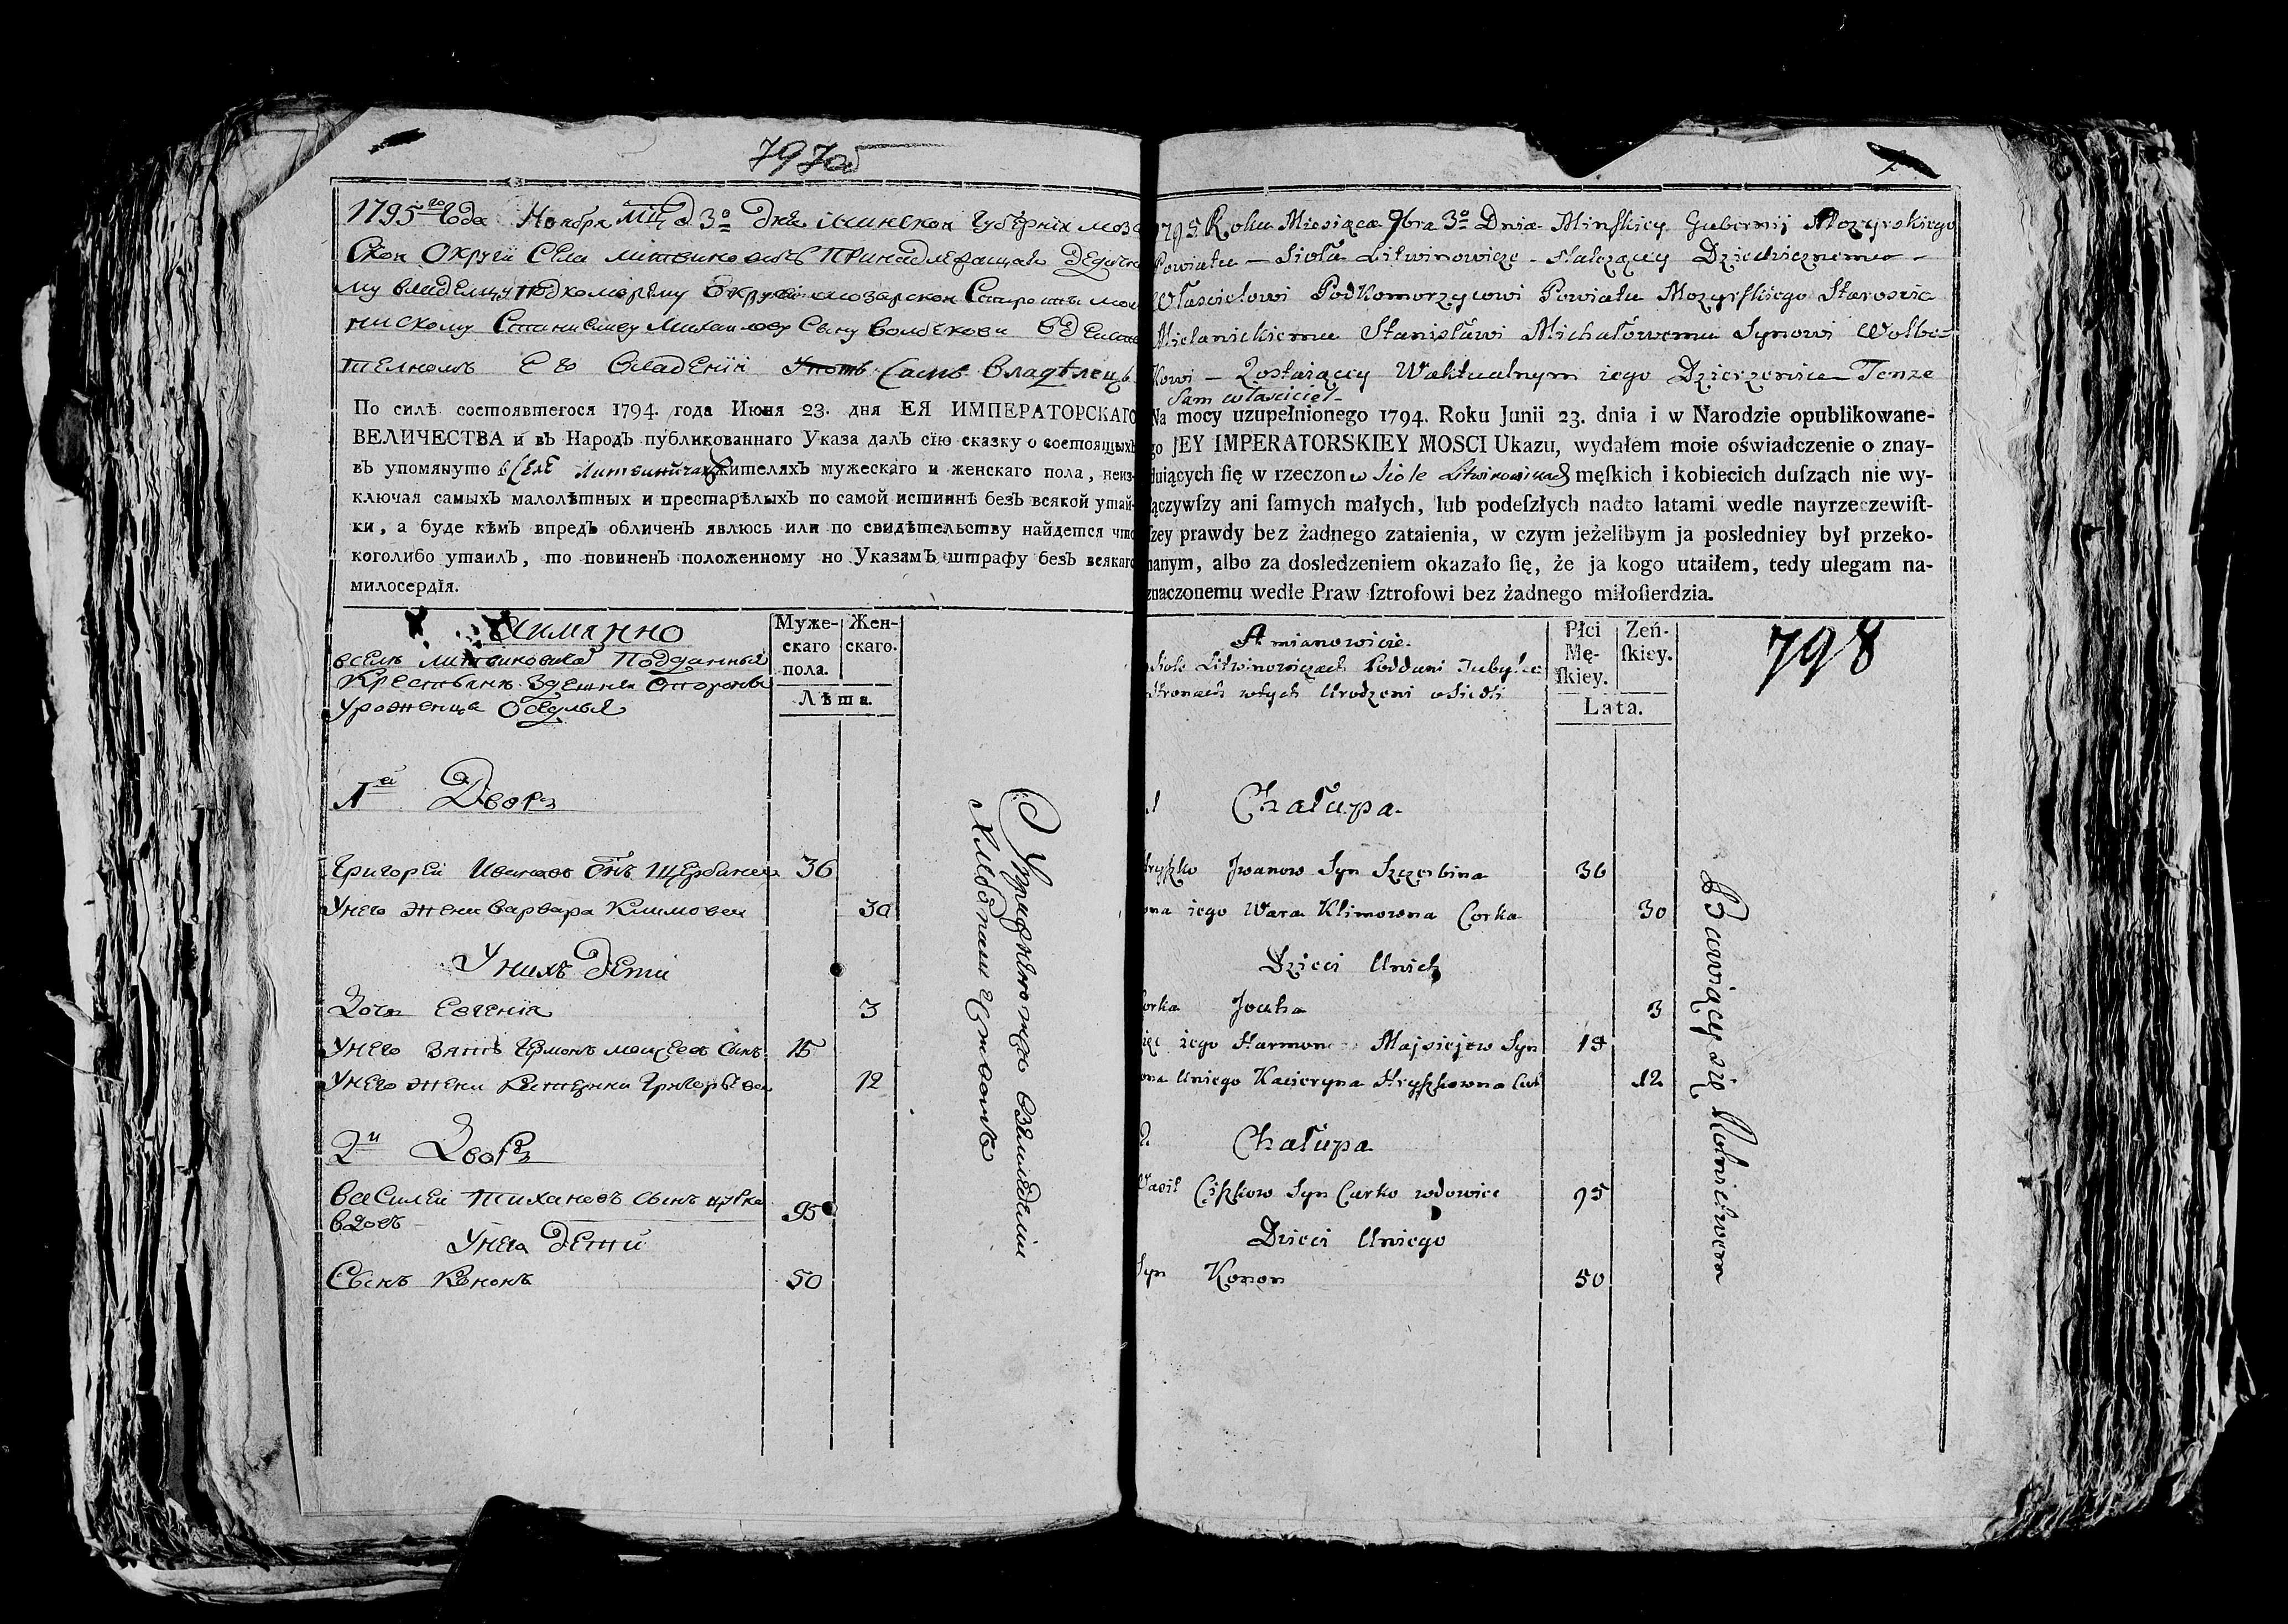 797об
1795го года Ноября Мца 3о дня минской губернiи моза
ской Округи Села Литвиновичъ принадлежащаго Дедично
му владелцу подкоморему Округи мозарской Старосты мел
нискому Станиславу Михаилову Сыну Волбекови в действи
телномъ Его владенiи Самъ владѣлецъ
По силѣ состоявшегося 1794. года Июня 23. дня ЕЯ ИМПЕРАТОРСКАГО
ВЕЛИЧЕСТВА и въ Народъ публикованнаго Указа далъ сїю сказку о состоящихъ
въ упомянуто в селе Литвиничахъ жителяхъ мужескаго и женскаго пола, неиз-
ключая самыхъ малолѣтныхъ и престарѣлыхъ по самой истиннѣ безъ всякой утай-
ки, а буде кѣмъ впредъ обличенъ явлюсь или по свидѣтельству найдется что
коголибо утаилъ, то повиненъ положенному по Указамъ штрафу безъ всякаго
милосердїя.
Аимянно
в селе Литвиновичахъ Подданныя
Крестьяне здешней стороны
Уроженцы
Муже-
скаго
пола.
Жен-
скаго.
Лѣта.
1й Дворъ
Григорей Ивановъ Снъ Щербина 36
У него жена Варвара Климова 30
У нихъ дети
Дочь Евгенiя 3
У него зять Гармонъ Мосеевъ Сынъ 15
У него жена Катерина Григорьева 12
2й Дворъ
Василей Тихановъ сынъ Цурка
вдовъ 95
У него дети
Сынъ Кононъ 50
Упражняются в земледелiи
хлебопашествомъ
1795 Roku Miesiąca 9bra 3o Dnia Minſkiey Gubernij Mozyrskiego
Powiatu — Sioła Litwinowicze — Należący Dziedzicznemu —
Właścicielowi PodKomorzycowi Powiatu Mozyrſkiego Starosvie
Mielanickiemu Stanisławi Michałowemu Synowi Wolbe=
kowi — Zostaiącey Waktualnym iego Dzierzenice — Tenze
Sam właściciel —
Na mocy uzupełnionego 1794. Roku Junii 23. dnia i w Narodzie opublikowane-
go JEY IMPERATORSKIEY MOSCI Ukazu, wydałem moie oświadczenie o znay-
duiących ſię w rzeczon w Siole Litwinowiczach męſkich i kobiecich duſzach nie wy-
łączywſzy ani ſamych małych, lub podeſzłych nadto latami wedle nayrzeczewiſt-
ſzey prawdy bez żadnego zataienia, w czym jeżelibym ja posledniey był przeko-
nanym, albo za dosledzeniem okazało ſię, że ja kogo utaiłem, tedy ulegam na-
znaczonemu wedle Praw ſztrofowi bez żadnego miłoſierdzia.
798
A mianowicie.
Siole Litwinowiczach Poddani
Stronach wtych Urodzeni
Płci
Mę-
ſkiey.
Zeń-
ſkiey.
Lata.
1 Chałupa
Hryſzko Jwanow Syn Szczerbina 36
żona iego Wara Klimowna Corka 30
Dzieci Unich
Corka Jouha 3
zięć iego Harmon Majsiejew Syn 15
żona Uniego Kacieryna Hryſzkowna 12
2 Chałupa
Wasil Ciſzkow Syn Curko wdowiec 95
Dzieci Uniego
Syn Konon 50
Bawiący się Rolnictwem